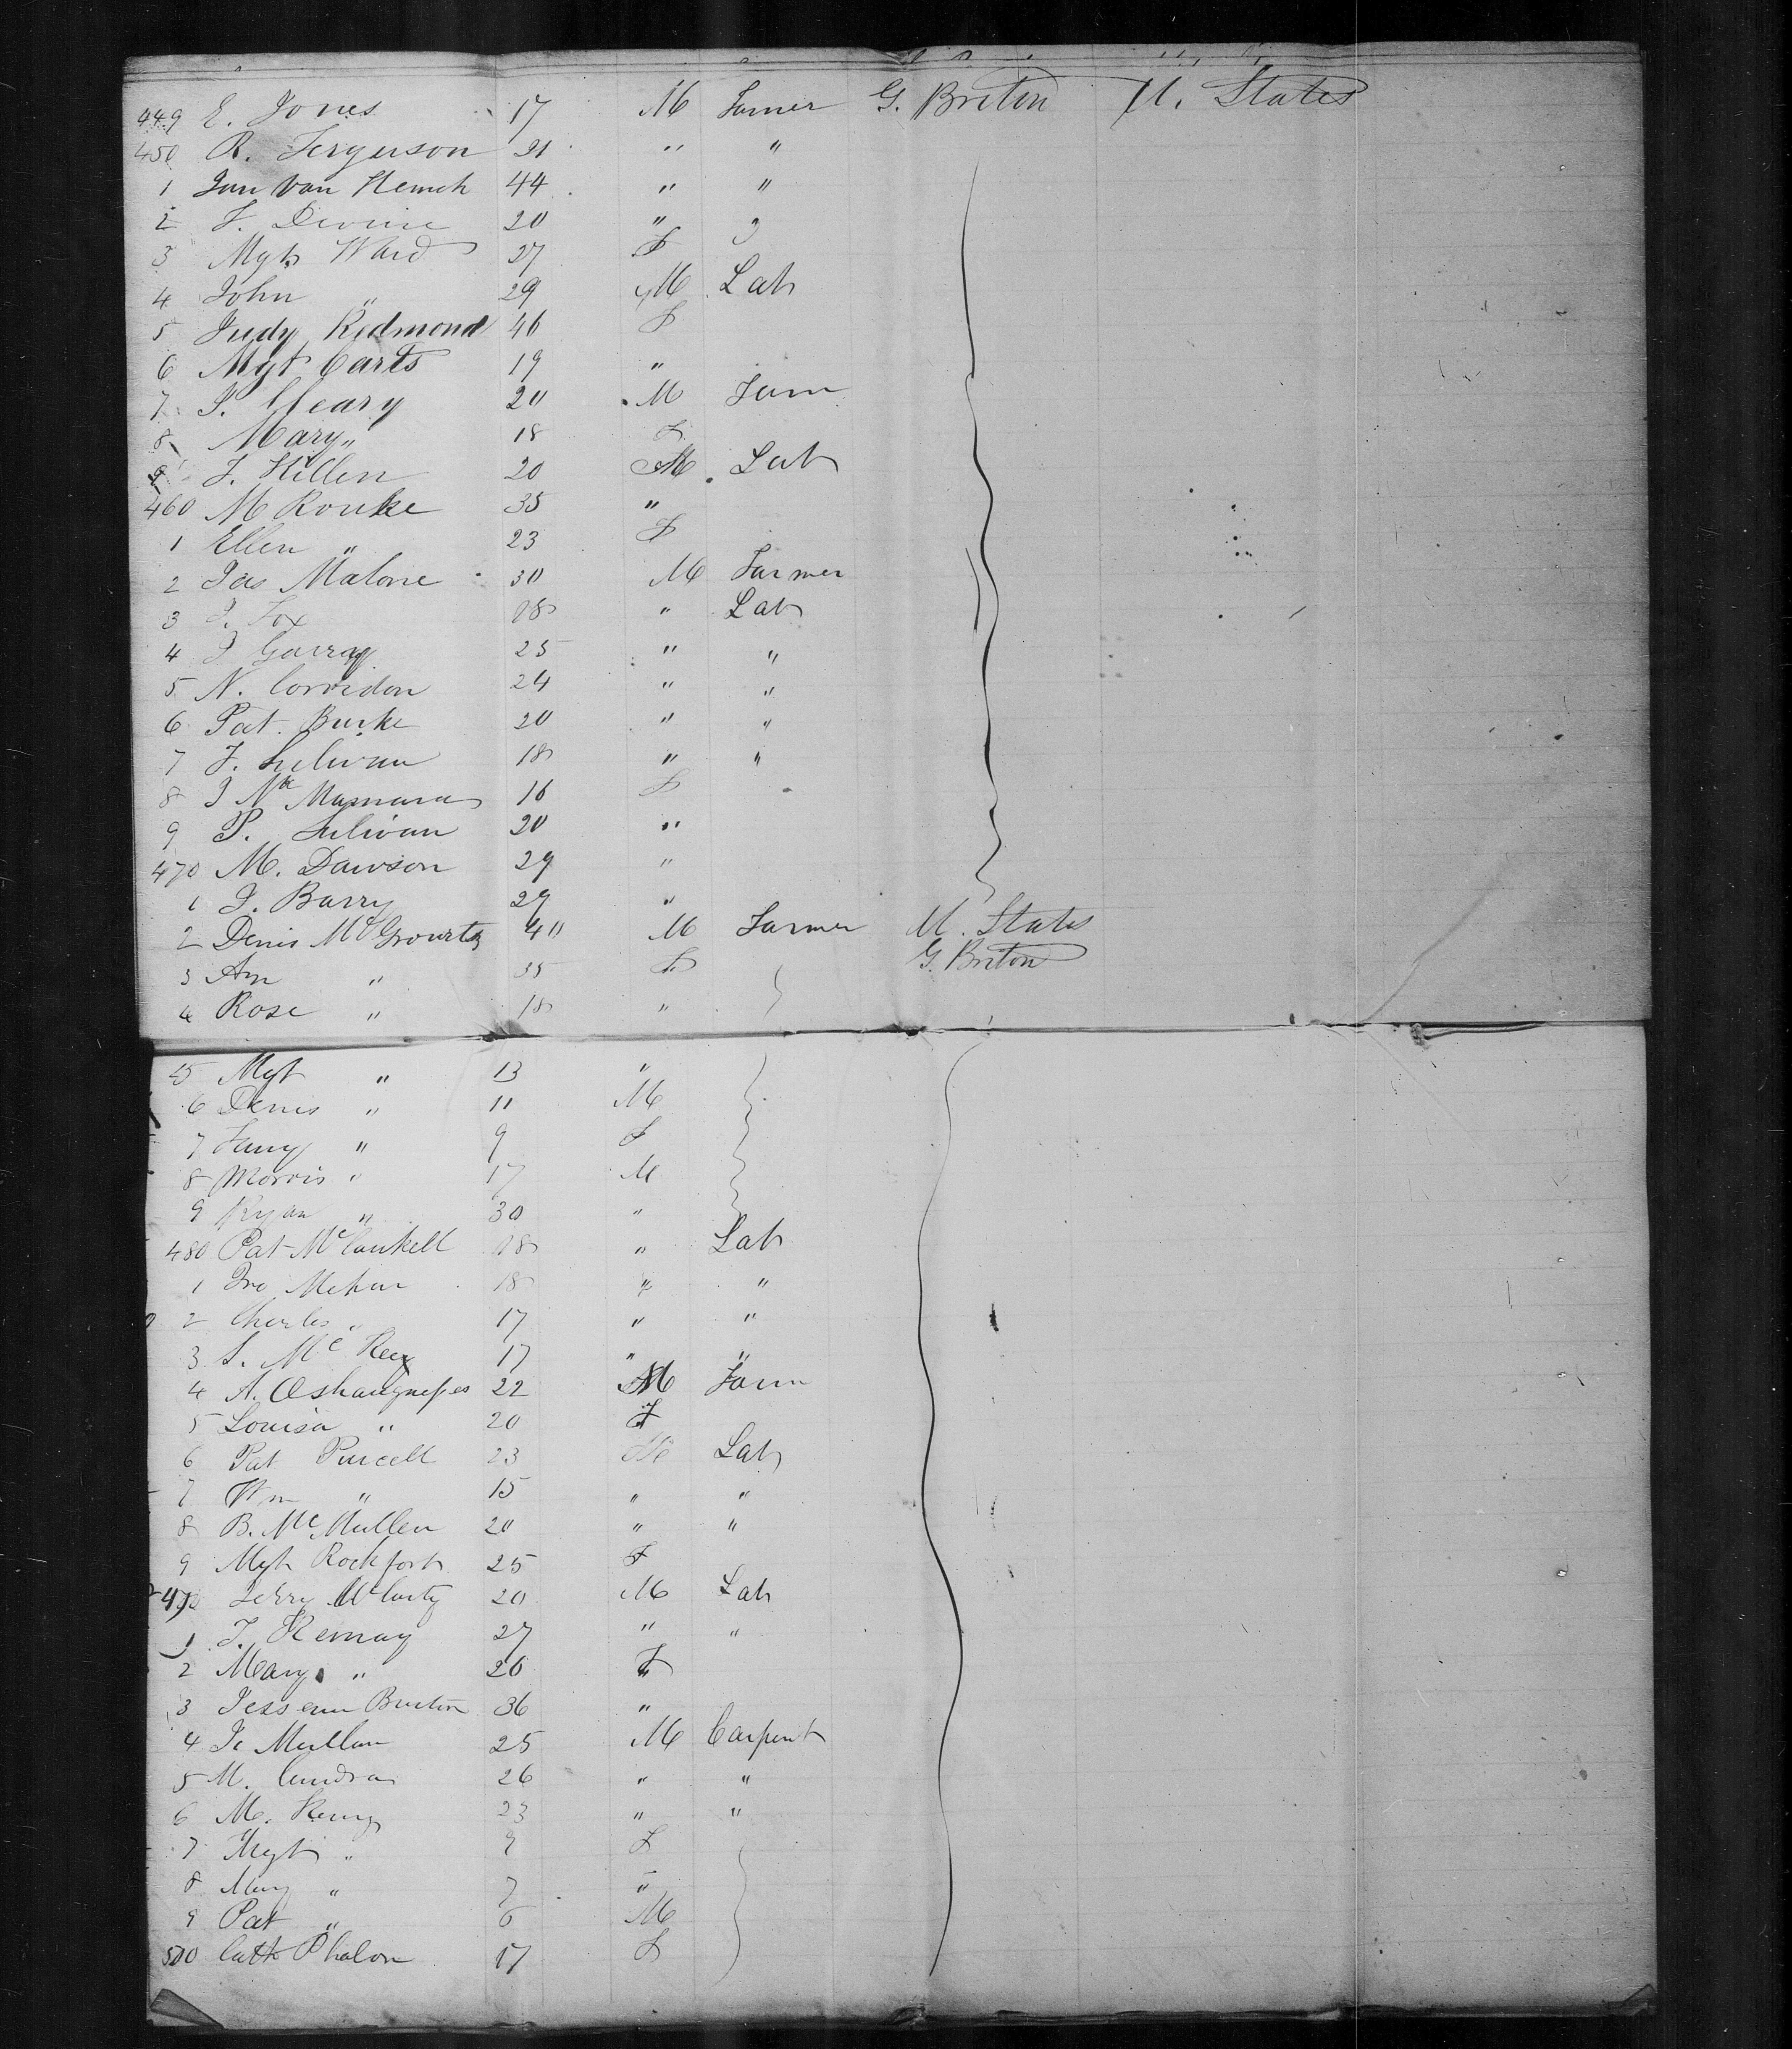 449 E. Jones 17 M Farmer G. Briton U. States
450 R. Fergerson 21 " "
1 Jan Van 44 " "
2 F. Devine 20 " "
3 Mgt Ward 27 F
4 John " 29 M Lab
5 Judy Redmond 46 F
6 Mgt Carts 19 "
7 P. Cleary 20 M Farm
8 Mary " 18 F
9 J. Killen 20 M Lab
460 M Rourke 35 "
1 Ellen " 23 F
2 Jas Malone 30 M Farmer
3 J. Fox 18 " Lab
4 J Garray 25 " "
5 N. Corredon 24 " "
6 Pat. Burke 20 " "
7 J. Sulivan 18 " "
8 J Mc Mamara 16 F
9 P. Sulivan 20 "
470 M. Dawson 29 "
1 J. Barry 29 "
2 Denis 40 M Farmer U. States
3 An " 35 F G. Briton
4 Rose " 18 "
5 Mgt " 13 "
6 Denis " 11 M
7 Fany " 9 F
8 Morris " 17 M
9 Ryan " 30 "
480 Pat 18 " Lab
1 Jno 18 " "
2 Charles " 17 " "
3 S. Mc Key 17 " "
4 A. 22 M Farm
5 Louisa " 20 F
6 Pat Purcell 23 M Lab
7 Wm " 15 " "
8 B. Mc Mullen 20 " "
9 Mgt Rockfort 25 F
490 Jerry McCarty 20 M Lab
1 J. 27 " "
2 Mary " 20 F
3 Burton 36 "
4 Mullan 25 M Carpent
5 M. 26 " "
6 M. 23 " "
7 Mgt " 9 F
8 Mary " 7 "
9 Pat " 6 M
500 Cath Phalon 17 F